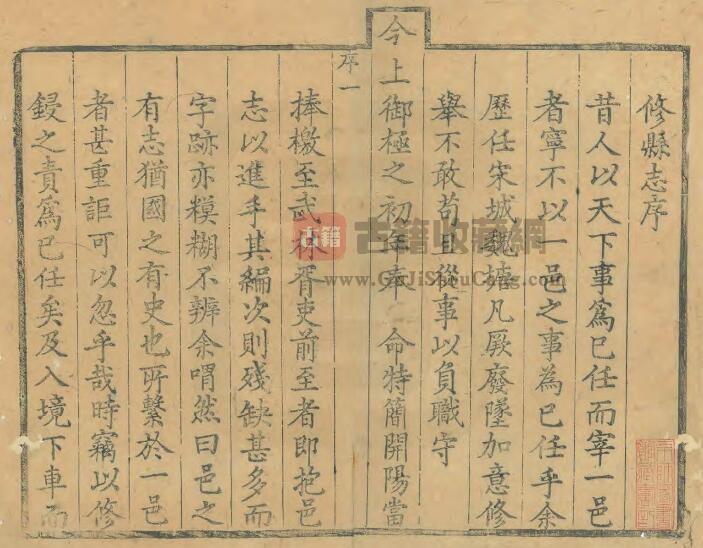 修縣志序
昔人以天下事爲已任而宰一邑
者寧不以一邑之事為已任乎余
歷任宋城魏塘凡厥廢墜加意修
舉不敢苟且從事以負職守
今上御極之初年奉 命特簡開陽當
序一
捧檄至武林胥吏前至者即抱邑
志以進乎其編次則殘缺甚多而
字跡亦糢糊不辨余喟然曰邑之
有志猶國之有史也所繫於一邑
者甚重詎可以忽乎哉時竊以修
鋟之責爲已任矣及入境下車而
古籍 古籍收藏網
GuJiShouCang.com